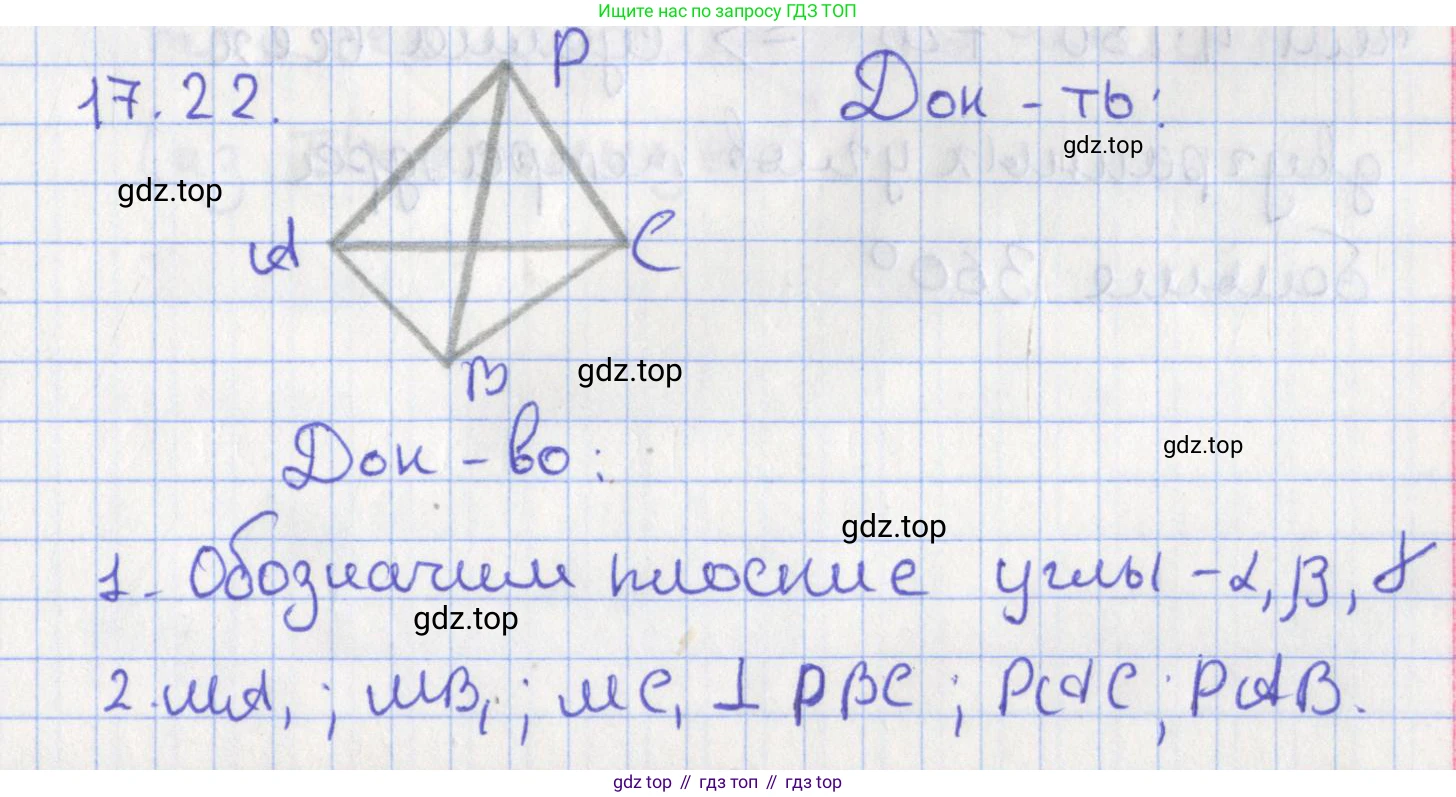 Ищите нас по запросу ГДЗ ТОП
17.22.
P
Док-ть:
gdz.top
gdz.top
A
C
B
gdz.top
Док-во:
gdz.top
gdz.top
1. Обозначим плоские углы - α, β, γ
gdz.top
2. MA₁; MB₁; MC₁ ⊥ PBC; PAC; PAB.
gdz top // гдз топ // gdz top